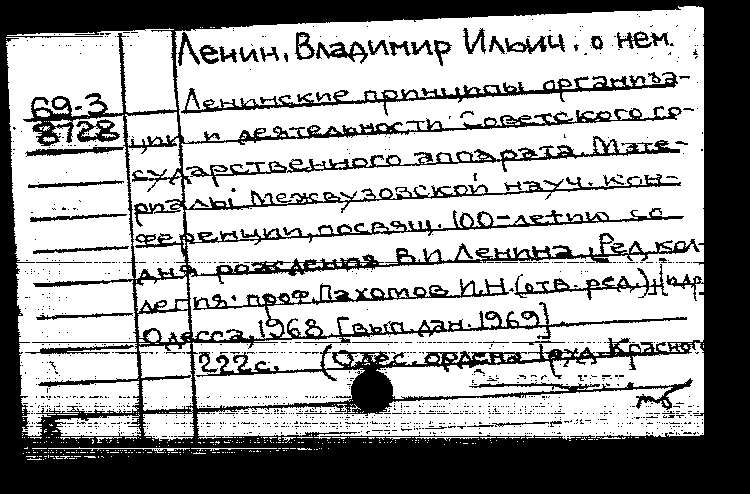 Ленин, Владимир Ильич. о нем.
69-3
8728
Ленинские принципы организа-
ции и деятельности Советского го-
сударственного аппарата. Мате-
риалы Межвузовской науч. кон-
ференции, посвящ. 100-летию со
дня рождения В.И Ленина. [Ред. кол-
легия: проф. Пахомов И.Н. (отв. ред.)
Одесса, 1968. [вып. дан. 1969]
222 с. (Одес. ордена Труд. Красного